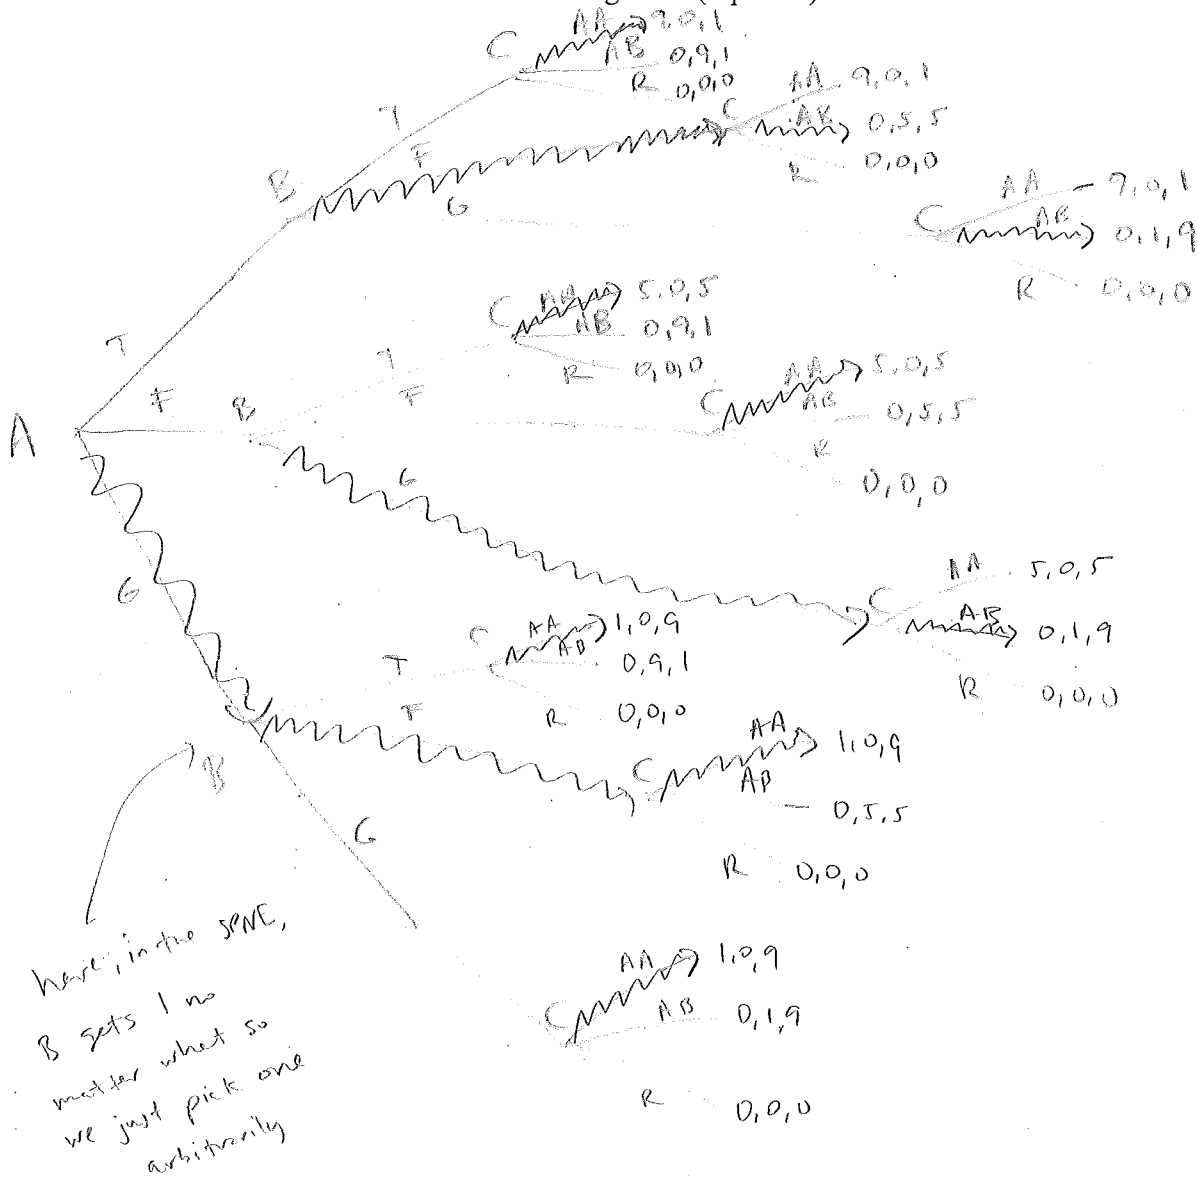 C AA 9,0,1
AB 0,9,1
R 0,0,0
T
B F C AA 9,0,1
AB 0,5,5
R 0,0,0
G C AA 9,0,1
AB 0,1,9
R 0,0,0
T
C AA 5,0,5
AB 0,9,1
R 0,0,0
T
A F B F C AA 5,0,5
AB 0,5,5
R 0,0,0
G
C AA 5,0,5
AB 0,1,9
R 0,0,0
G
T C AA 1,0,9
AB 0,9,1
R 0,0,0
B F C AA 1,0,9
AB 0,5,5
R 0,0,0
G
C AA 1,0,9
AB 0,1,9
R 0,0,0
here, in the SPNE,
B gets 1 no
matter what so
we just pick one
arbitrarily